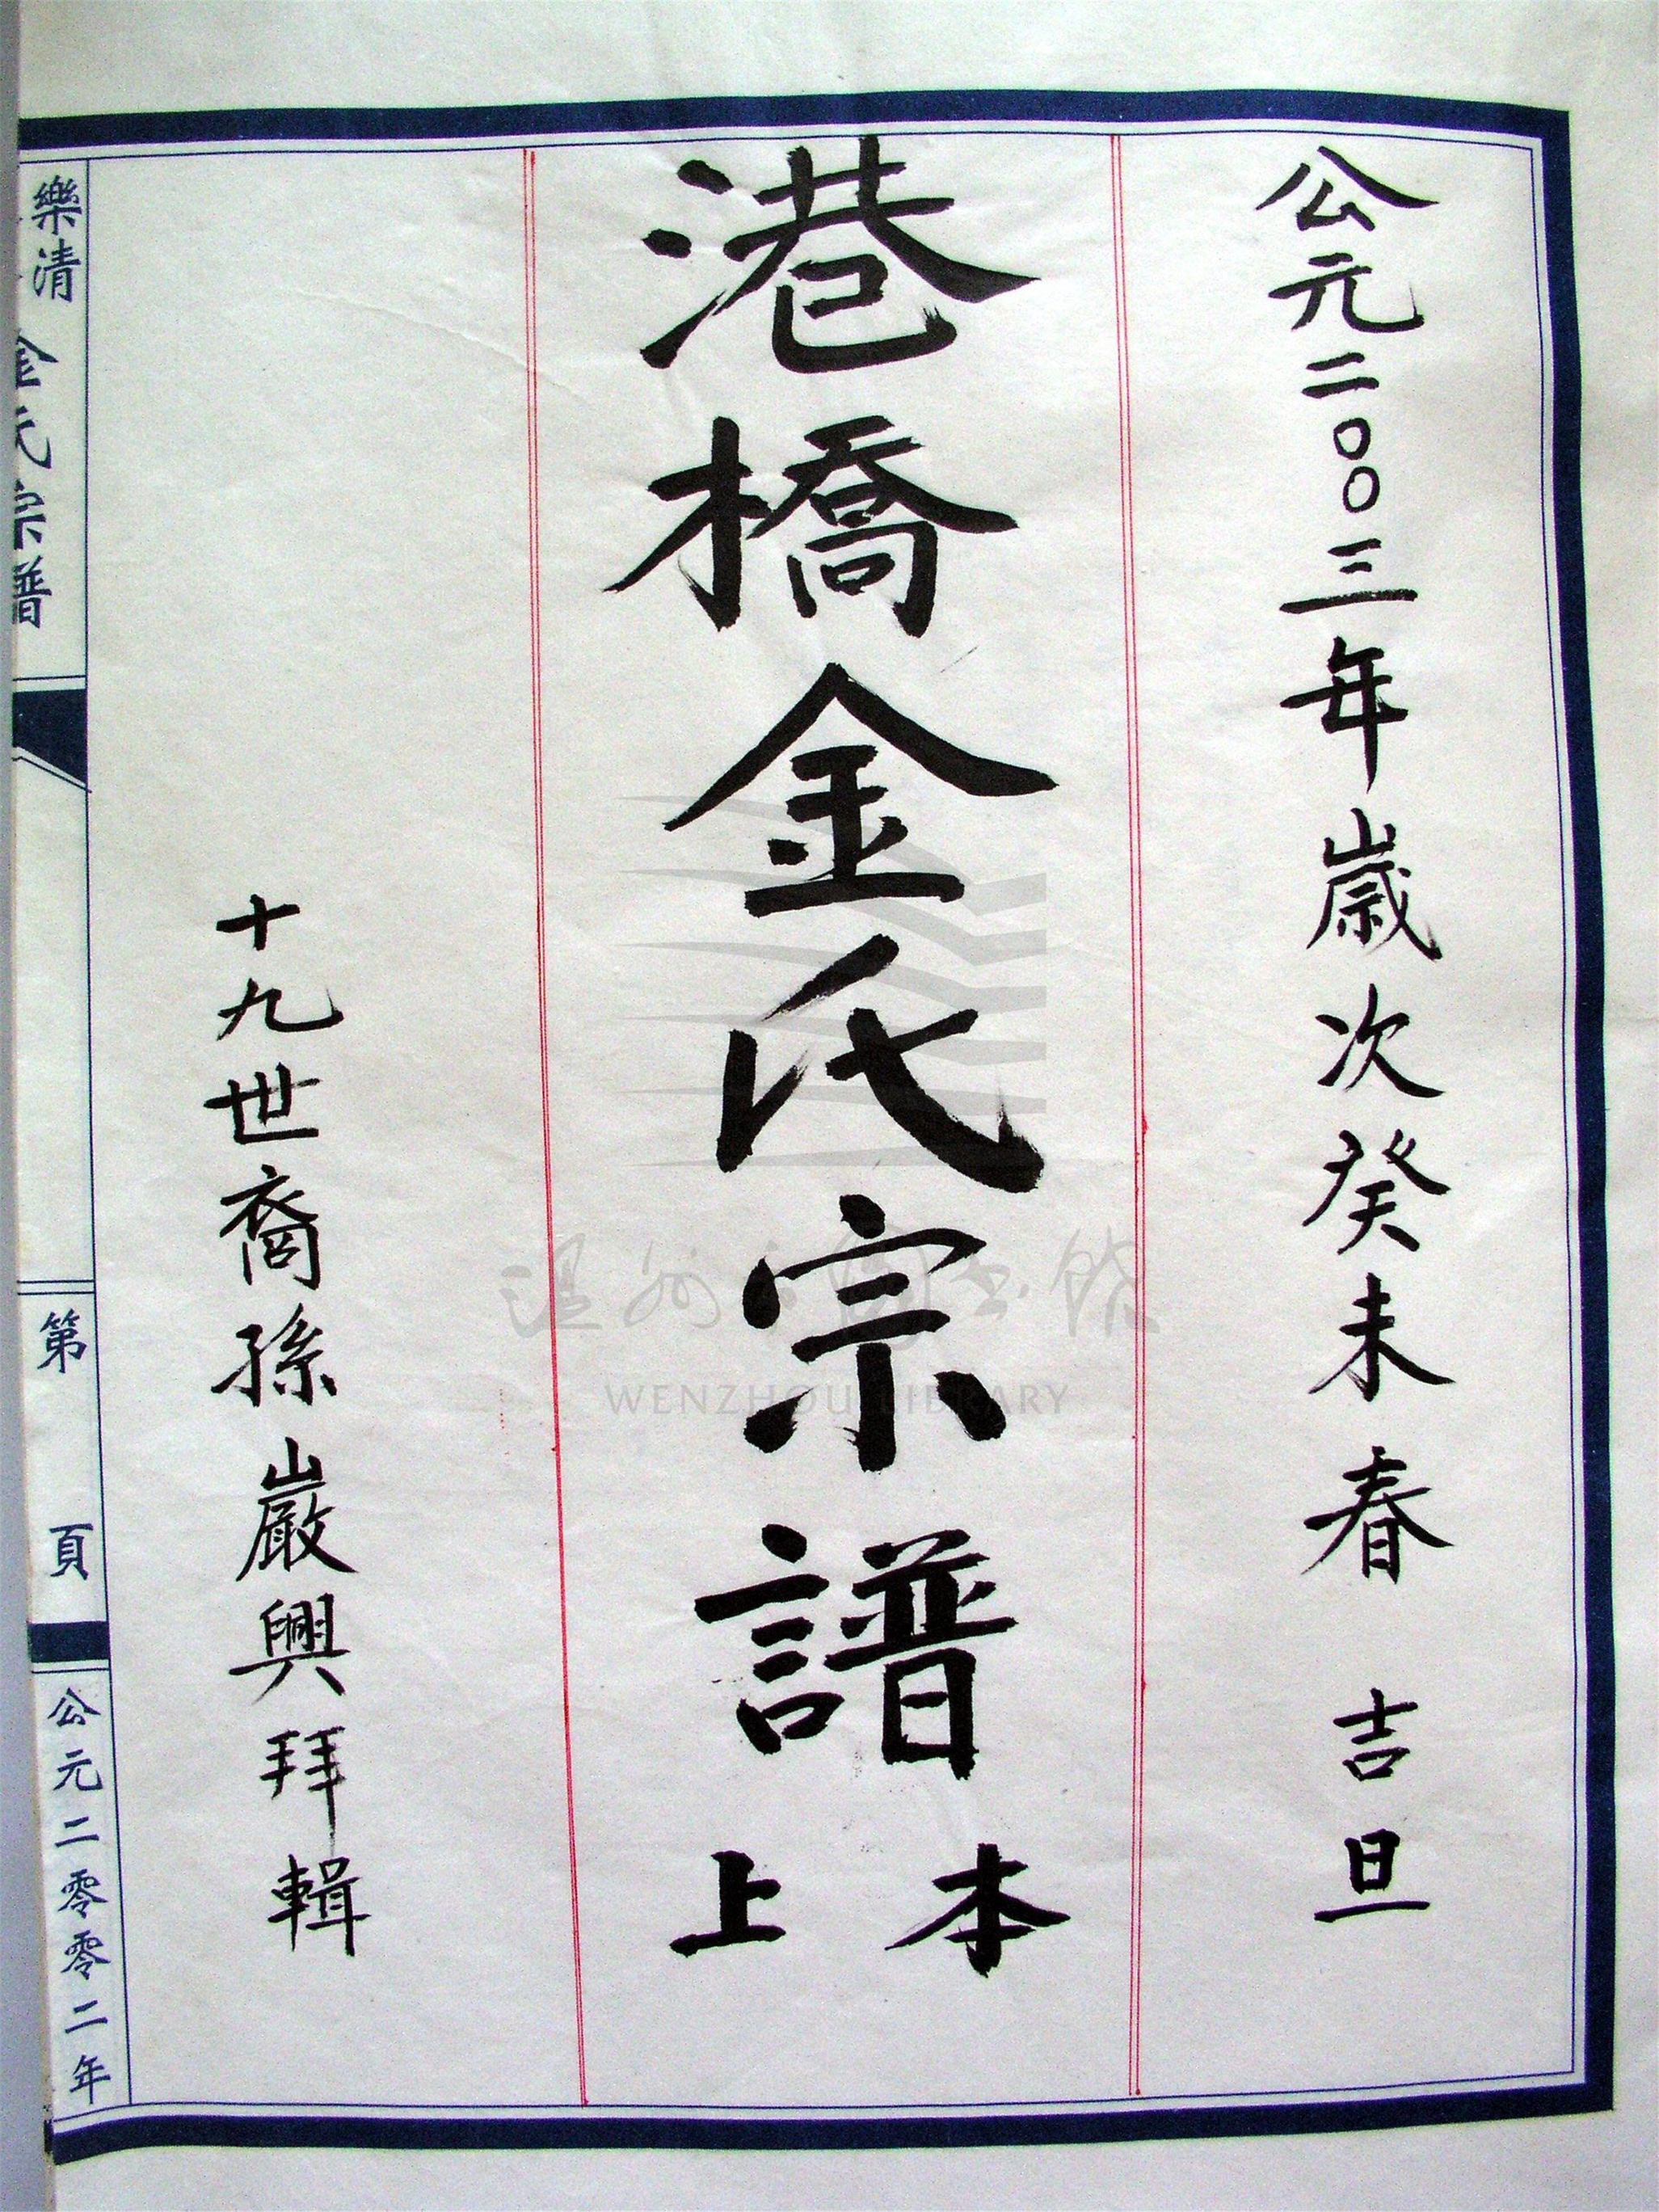 公元二〇〇三年歲次癸未春 吉旦
港橋金氏宗譜 本上
十九世裔孫嚴興拜輯
樂清 金氏宗譜 第 頁 公元二零零二年
温州市图书馆
WENZHOU LIBRARY